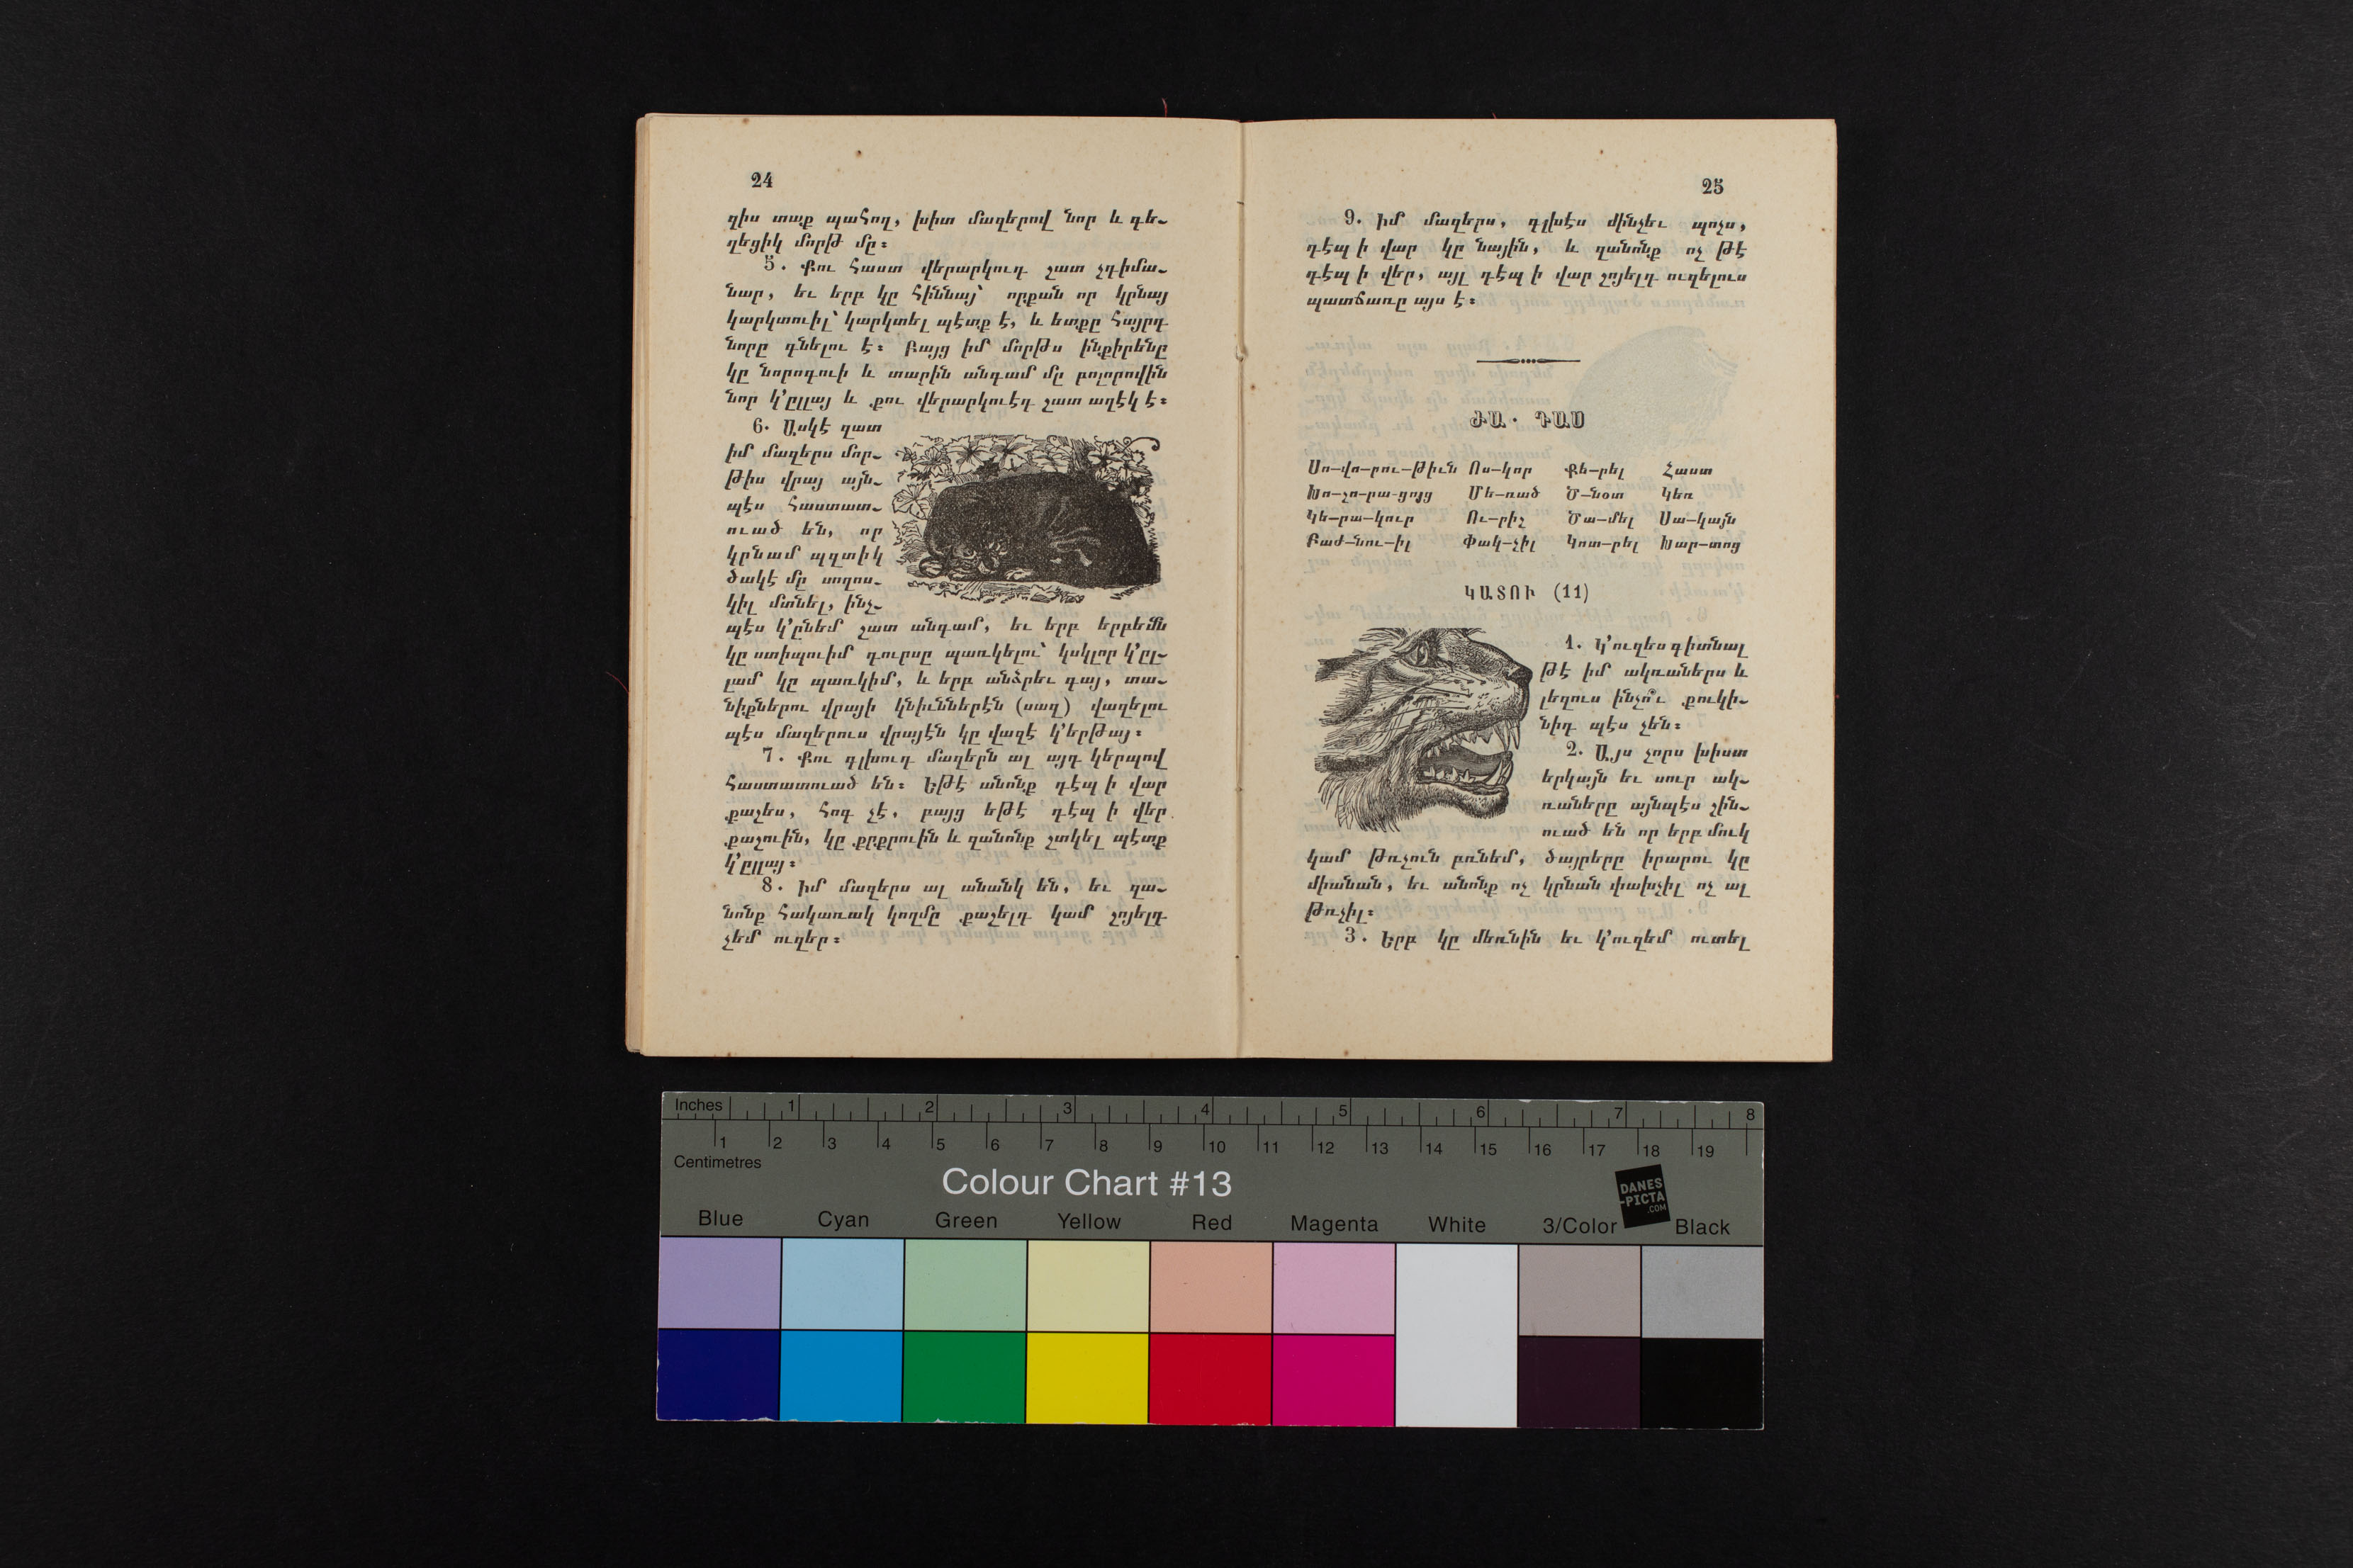 24
զիս տաք պահող, խիտ մազերով նոր և գե-
ղեցիկ մորթ մը։
5. Քու հաստ վերարկուդ շատ չդիմա-
նար, եւ երբ կը հիննայ՝ որքան որ կրնայ
կարկտուիլ՝ կարկտել պէտք է, և ետքը հայրդ
նորը գնելու է։ Բայց իմ մորթս ինքիրենը
կը նորոգուի և տարին անգամ մը բոլորովին
նոր կ'ըլլայ և քու վերարկուէդ շատ աղէկ է։
6. Ասկէ զատ
իմ մազերս մոր-
թիս վրայ այն-
պէս հաստատ-
ուած են, որ
կրնամ պզտիկ
ծակէ մը սողոս-
կիլ մտնել, ինչ-
պէս կ'ընեմ շատ անգամ, եւ երբ երբեմն
կը ստիպուիմ դուրսը պառկելու՝ կսկլոր կ'ըլ-
լամ կը պառկիմ, և երբ անձրեւ գայ, տա-
նիքներու վրայի կնիւններէն (սաղ) վազելու
պէս մազերուս վրայէն կը վազէ կ'երթայ։
7. Քու գլխուդ մազերն ալ այդ կերպով
հաստատուած են։ Եթէ անոնք դէպ ի վար
քաշես, հոգ չէ, բայց եթէ դէպ ի վեր
քաշուին, կը քրքրուին և զանոնք շտկել պէտք
կ'ըլլայ։
8. Իմ մազերս ալ անանկ են, եւ զա-
նոնք հակառակ կողմը քաշելդ կամ շոյելդ
չեմ ուզեր։
25
9. Իմ մազերս, գլխէս մինչեւ պոչս,
դէպ ի վար կը նային, և զանոնք ոչ թէ
դէպ ի վեր, այլ դէպ ի վար շոյելդ ուզելուս
պատճառը այս է։
ԺԱ. ԴԱՍ
Սո-վո-րու-թիւն Ոս-կոր Քե-րել Հաստ
Խո-շո-րա-ցոյց Մե-ռած Ծ-նօտ Կեռ
Կե-րա-կուր Ու-րիշ Ծա-մել Սա-կայն
Բաժ-նու-իլ Փակ-չիլ Կոտ-րել Խար-տոց
ԿԱՏՈՒ (11)
1. Կ'ուզես գիտնալ
թէ իմ ակռաներս և
լեզուս ինչո՞ւ քուկի-
նիդ պէս չեն։
2. Այս չորս խիստ
երկայն եւ սուր ակ-
ռաները այնպէս շին-
ուած են որ երբ մուկ
կամ թռչուն բռնեմ, ծայրերը իրարու կը
միանան, եւ անոնք ոչ կրնան փախչիլ ոչ ալ
թռչիլ։
3. Երբ կը մեռնին եւ կ'ուզեմ ուտել
Inches 1 2 3 4 5 6 7 8
1 2 3 4 5 6 7 8 9 10 11 12 13 14 15 16 17 18 19
Centimetres
Colour Chart #13
DANES
-PICTA
.COM
Blue Cyan Green Yellow Red Magenta White 3/Color Black